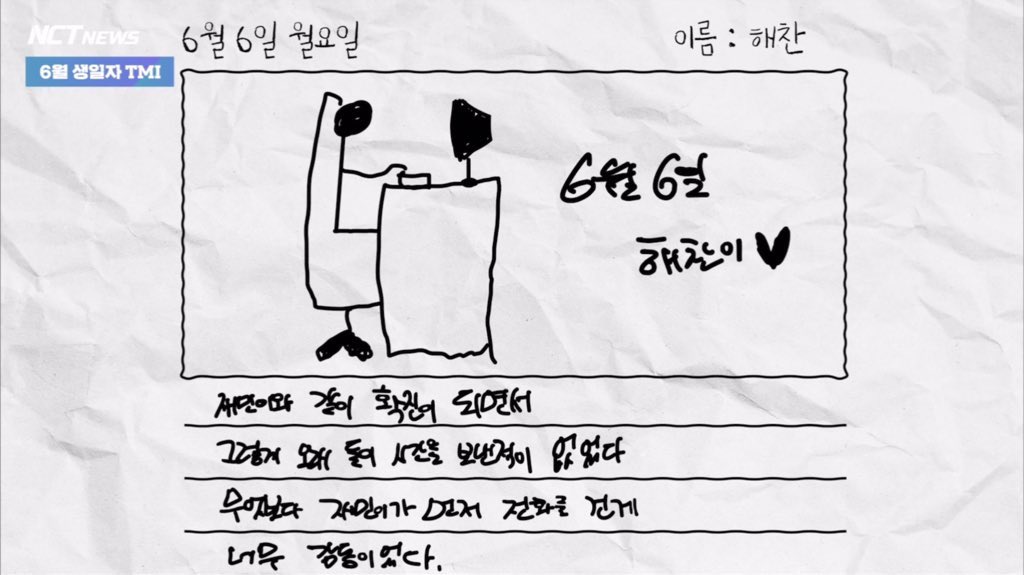 NCT NEWS
6월 생일자 TMI
6월 6일 월요일
이름 : 해찬
6월 6일
해찬이 ♥
재민이와 같이 확진이 되면서
그렇게 오래 둘이 시간을 보낸적이 없었다
무엇보다 재민이가 먼저 전화를 건게
너무 감동이었다.